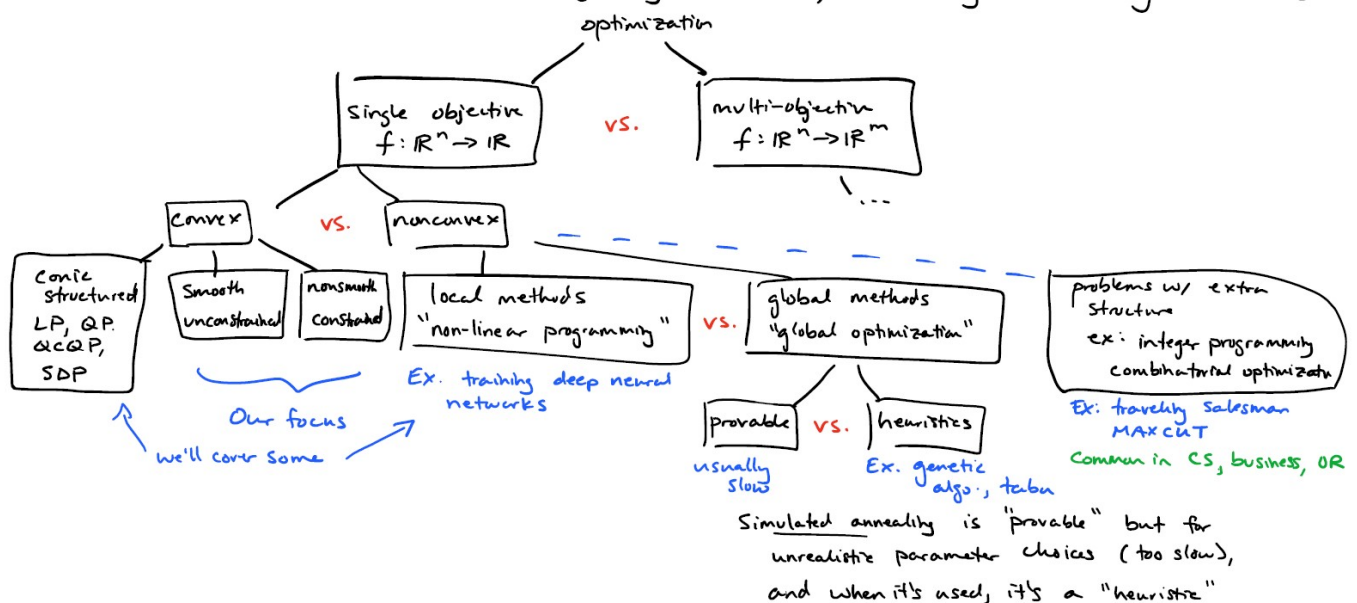 optimization
single objective
f: ℝⁿ → ℝ
vs.
multi-objective
f: ℝⁿ → ℝᵐ
...
convex
vs.
nonconvex
conic
structured
LP, QP.
QCQP,
SDP
Smooth
unconstrained
nonsmooth
constrained
local methods
"non-linear programming"
vs.
global methods
"global optimization"
problems w/ extra
structure
ex: integer programming
combinatorial optimizatn
Our focus
we'll cover some
Ex. training deep neural
networks
provable
vs.
heuristics
usually
slow
Ex. genetic
algo., tabu
Ex: traveling salesman
MAXCUT
Common in CS, business, OR
Simulated annealing is "provable" but for
unrealistic parameter choices (too slow),
and when it's used, it's a "heuristic"